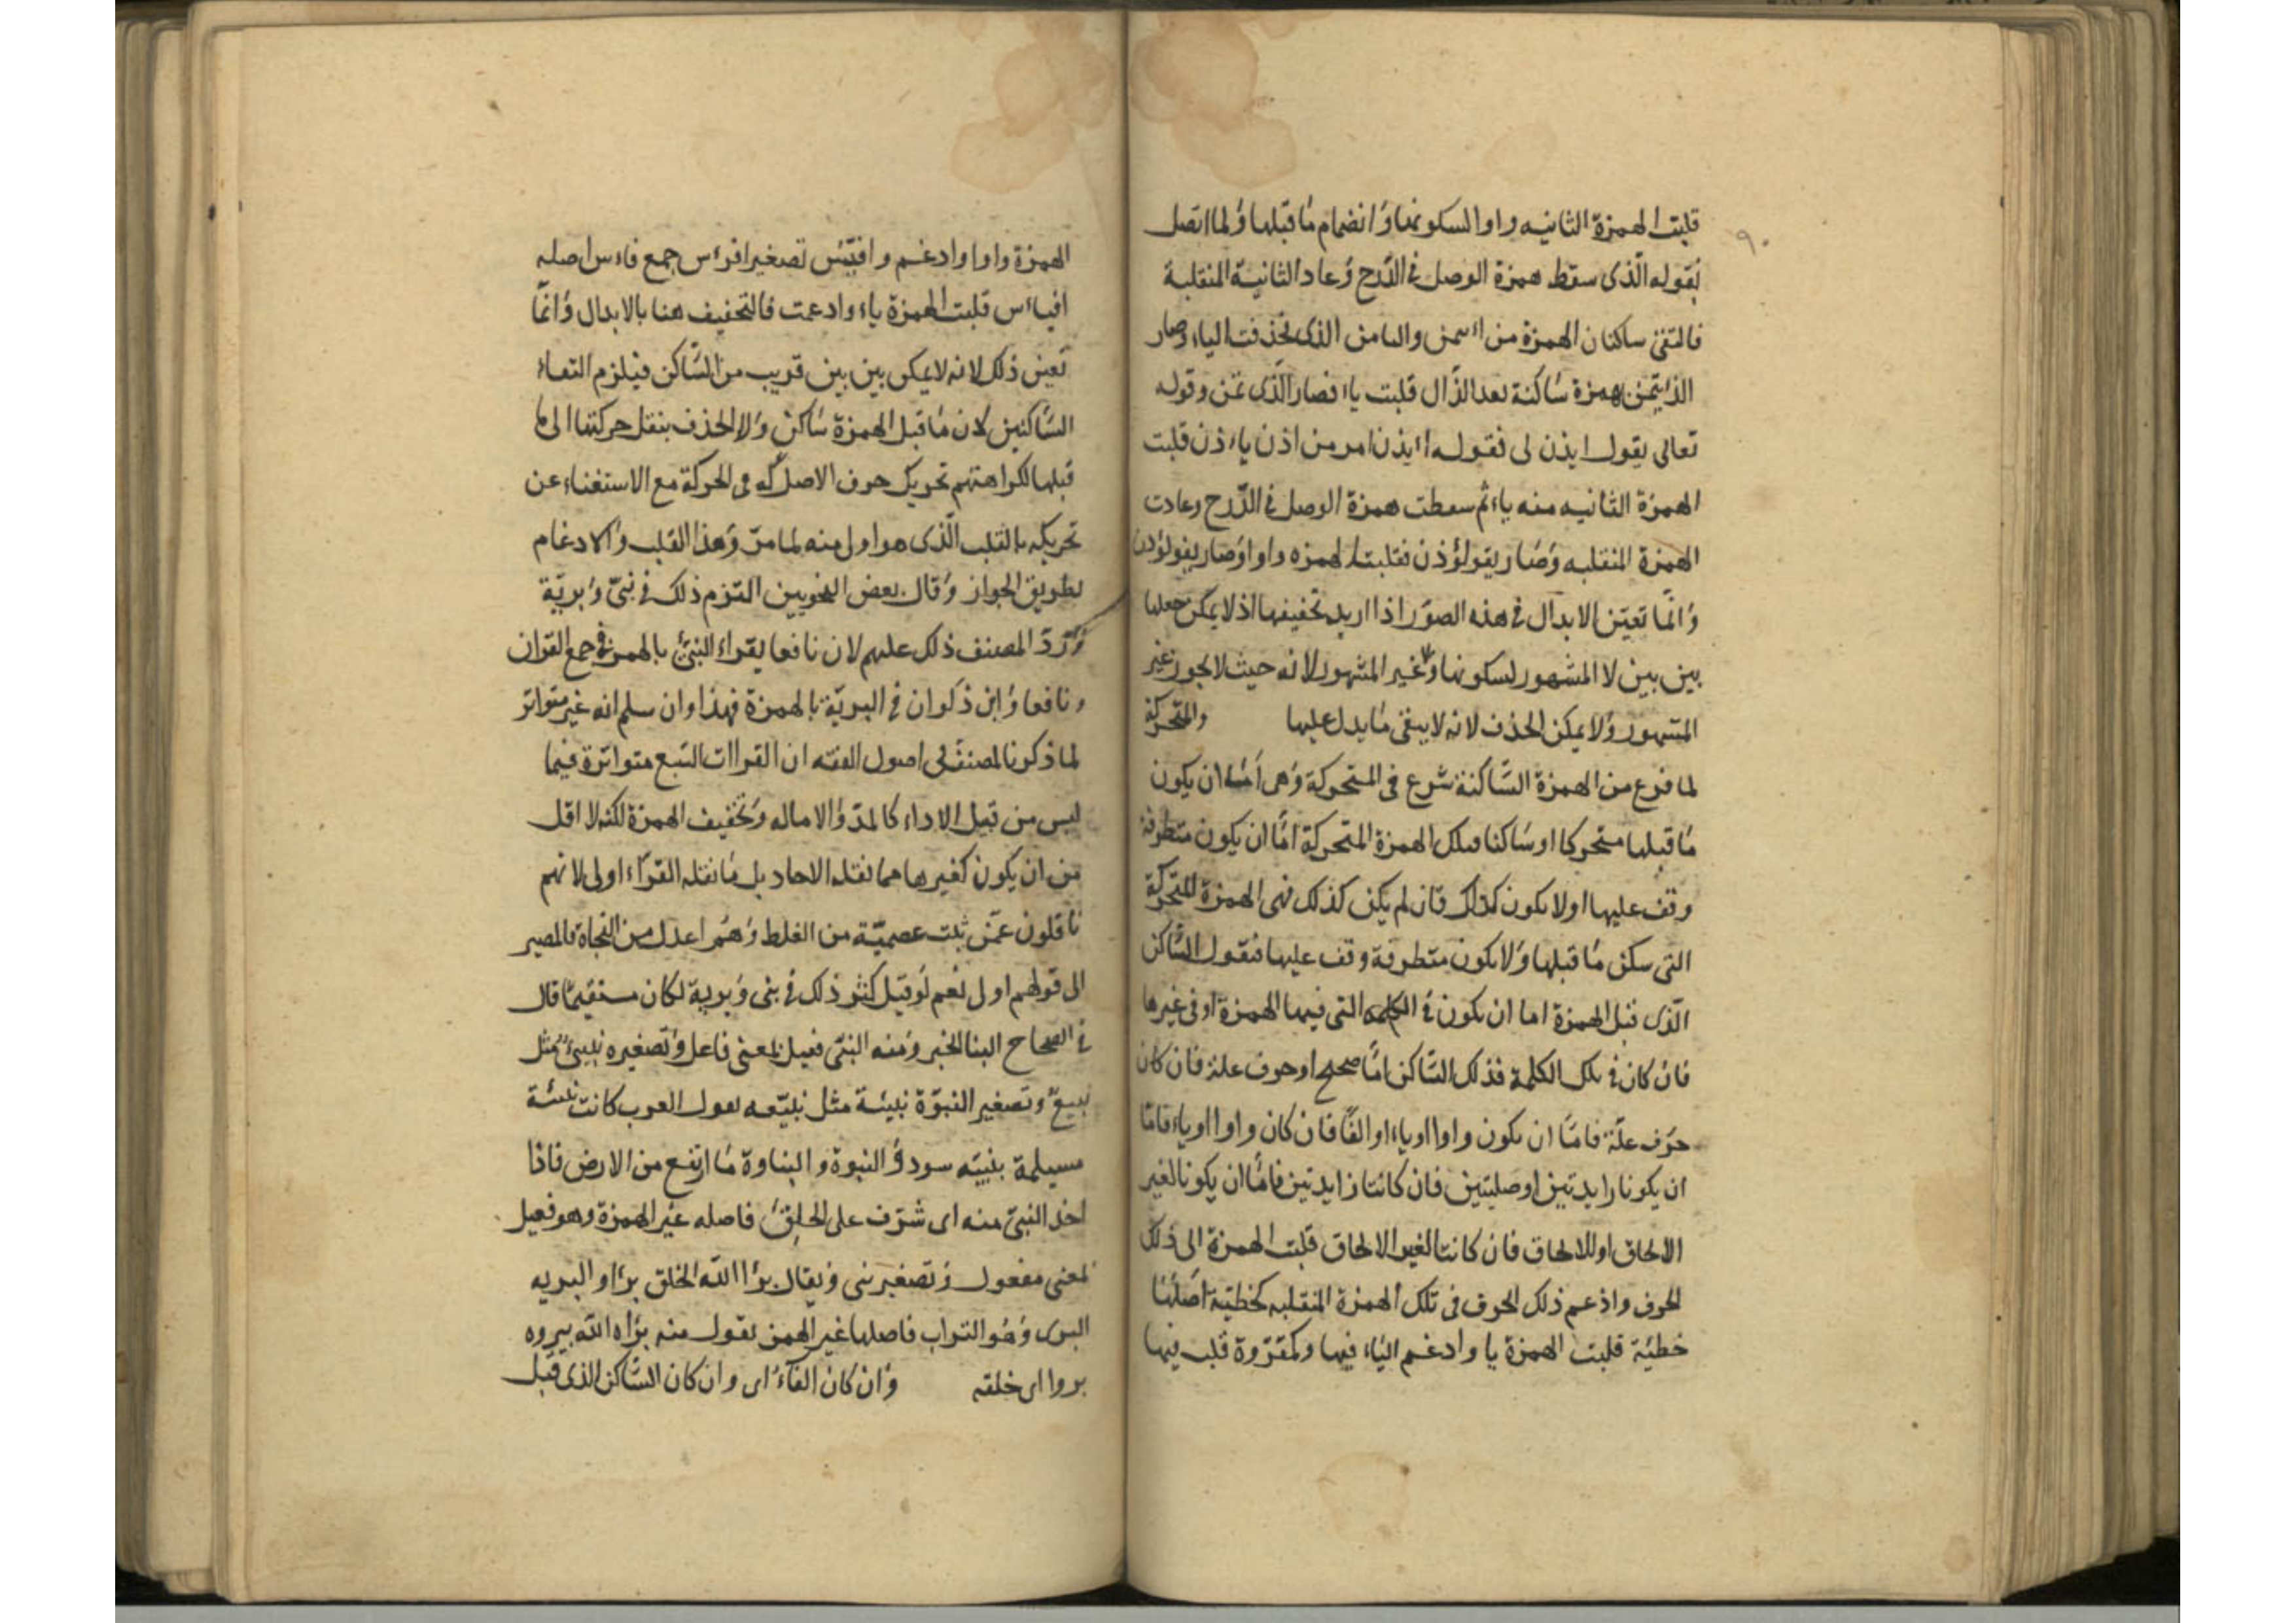 ٩٠
قلبت الهمزة الثانيه واوا لسكونها وانضمام ما قبلها ولما اتصل
بقوله الذى سقط همزة الوصل فى الدرج وعاد الثانية المنقلبة
فالتقى ساكنان الهمزة من اءتمن والیا من الذى فحذفت الیاء وصار
الذئتمن بهمزة ساكنة بعد الذال قلبت یاء فصار الذى تمن وقوله
تعالى يقول ايذن لى فقوله اءيذن امر من اذن ياءذن قلبت
الهمزة الثانيه منه ياء ثم سقطت همزة الوصل فى الدّرج وعادت
الهمزة المنقلبه وصار يقولؤذن فقلبت الهمزه واوا وصار يقولوذن
وانّما تعيّن الابدال فى هذه الصوَر اذا اريد تخفيفها اذ لا يمكن جعلها
بين بين لا المشهور لسكونها ولا غير المشهور لانه حيث لا يجوز غير
المشهور ولا يمكن الحذف لانه لا يبقى ما يدل عليها والمتحركة
لما فرغ من الهمزة السّاكنة شرع فى المتحركة وهى امّا ان يكون
ما قبلها متحركا او ساكنا فتلك الهمزة المتحركة امّا ان يكون متطرفة
وقف عليها اولا يكون كذلك فان لم يكن كذلك فهى الهمزة المتحركة
التى سكن ما قبلها ولا يكون متطرفة وقف عليها فنقول السّاكن
الّذى قبل الهمزة اما ان يكون فى الكلمه التى فيها الهمزة او فى غيرها
فان كان فى تلك الكلمة فذلك السّاكن امّا صحيح او حرف علة فان كان
حرف علّة فامّا ان يكون واوا او ياء او الفًا فان كان واوا او ياء فامّا
ان يكونا زايدتين او صليتين فان كانتا زايدتين فامّا ان يكونا لغير
الالحاق او للالحاق فان كانتا لغير الالحاق قلبت الهمزة الى ذلك
الحرف وادغم ذلك الحرف فى تلك الهمزة المنقلبه كخطيّة اصلها
خطئية قلبت الهمزة يا وادغم الياء فيها وكمقروة قلب فيها
الهمزة واوا وادغم وافيّس تصغير افؤس جمع فاءس اصله
افياءس قلبت الهمزة ياء وادغمت فالتخفيف هنا بالابدال وانّما
تعين ذلك لانه لا يمكن بين بين قريب من السّاكن فيلزم التقاء
السّاكنين لان ما قبل الهمزة ساكن ولا الحذف بنقل حركتها الى ما
قبلها لكراهتهم تحريك حرف الاصل له فى الحركة مع الاستغناء عن
تحريكه بالقلب الّذى هو اولى منه لما مرّ وهذا القلب والادغام
بطريق الجواز وقال بعض النحويين التزم ذلك فى نبىّ وبريّة
وردّ المصنف ذلك عليهم لان نافعا يقراء النبىء بالهمز فى جميع القران
ونافعا وابن ذكوان فى البريّة بالهمزة فهذا وان سلم انه غير متواتر
لما ذكر المصنف فى اصول الفقه ان القراات السّبع متواترة فيما
ليس من قبيل الاداء كالمدّ والاماله وتخفيف الهمزة لكنه لا اقل
من ان يكون كغيرها مما نقله الاحاد بل ما نقله القراء اولى لانهم
ناقلون عمّن ثبت عصميّة من الغلط وهُم اعدل من النحاة فالمصير
الى قولهم اولى نعم لو قيل كثر ذلك فى نبى وبرية لكان مستقيما قال
فى الصحاح النبا الخبر ومنه النبىّ فعيل بمعنى فاعل وتصغيره نبيىء مثل
نبيع وتصغير النبوّة نبيئة مثل نبيّعه تقول العرب كانت نبيئة
مسيلمة بنيئه سود والنبوة والنباوة ما ارتفع من الارض فاذا
اخذ النبىّ منه اى شرّف على الخلق فاصله غير الهمزة وهو فعيل
بمعنى مفعول وتصغير نبى ويقال برا الله الخلق براء والبريه
البرى وهو التراب فاصلها غير الهمز تقول منه براه الله يبروه
بروا اى خلقه وان كان الفاء اى وان كان السّاكن الذى قبل